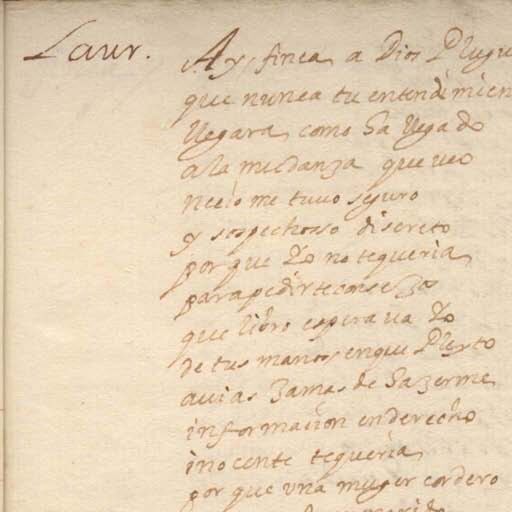 Laur. Ay finea a Dios Plugu
que nunca tu entendimien
llegara como Ha llegado
a la mudanza que veo
necio me tuuo seguro
y sospechosso discreto
por que Yo no te queria
para pedirte consejos
que libro esperaua Yo
de tus manos en que Pleyto
auias Jamas de Hazerme
informacion en derecho
inocente te queria
por que una muger cordero